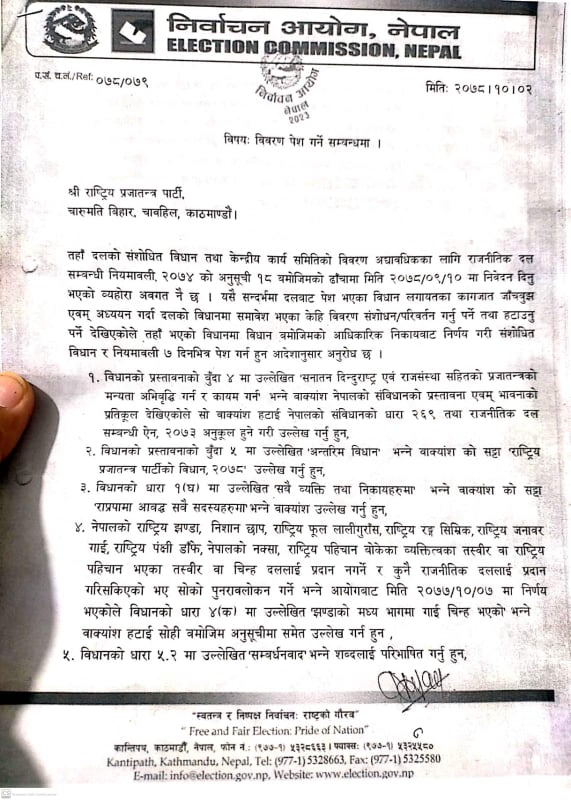 निर्वाचन आयोग, नेपाल
ELECTION COMMISSION, NEPAL
प.सं. च.नं./Ref: ०७८/०७९
निर्वाचन आयोग
नेपाल
२०२३
मिति: २०७८।१०।०२
विषय: विवरण पेश गर्ने सम्बन्धमा ।
श्री राष्ट्रिय प्रजातन्त्र पार्टी,
चारुमति बिहार, चावहिल, काठमाण्डौं।
तहाँ दलको संशोधित विधान तथा केन्द्रीय कार्य समितिको विवरण अद्यावधिकका लागि राजनीतिक दल
सम्बन्धी नियमावली, २०७४ को अनुसूची १८ बमोजिमको ढाँचामा मिति २०७८/०९/१० मा निवेदन दिनु
भएको व्यहोरा अवगत नै छ । यसै सन्दर्भमा दलबाट पेश भएका विधान लगायतका कागजात जाँचबुझ
एवम् अध्ययन गर्दा दलको विधानमा समावेश भएका केहि विवरण संशोधन/परिवर्तन गर्नु पर्ने तथा हटाउनु
पर्ने देखिएकोले तहाँ भएको विधानमा विधान बमोजिमको आधिकारिक निकायबाट निर्णय गरी संशोधित
विधान र नियमावली ७ दिनभित्र पेश गर्न हुन आदेशानुसार अनुरोध छ ।
१. विधानको प्रस्तावनाको बुँदा ४ मा उल्लेखित 'सनातन हिन्दुराष्ट्र एवं राजसंस्था सहितको प्रजातन्त्रको
मान्यता अभिवृद्धि गर्न र कायम गर्न' भन्ने वाक्यांश नेपालको संविधानको प्रस्तावना एवम् भावनाको
प्रतिकूल देखिएकोले सो वाक्यांश हटाई नेपालको संविधानको धारा २६९ तथा राजनीतिक दल
सम्बन्धी ऐन, २०७३ अनुकूल हुने गरी उल्लेख गर्नु हुन,
२. विधानको प्रस्तावनाको बुँदा ५ मा उल्लेखित 'अन्तरिम विधान' भन्ने वाक्यांश को सट्टा 'राष्ट्रिय
प्रजातन्त्र पार्टीको विधान, २०७८' उल्लेख गर्नु हुन,
३. विधानको धारा १(घ) मा उल्लेखित 'सबै व्यक्ति तथा निकायहरुमा' भन्ने वाक्यांश को सट्टा
'राप्रपामा आवद्ध सबै सदस्यहरुमा' भन्ने वाक्यांश उल्लेख गर्नु हुन,
४. नेपालको राष्ट्रिय झण्डा, निशान छाप, राष्ट्रिय फूल लालीगुराँस, राष्ट्रिय रङ्ग सिम्रिक, राष्ट्रिय जनावर
गाई, राष्ट्रिय पंक्षी डाँफे, नेपालको नक्सा, राष्ट्रिय पहिचान बोकेका व्यक्तित्वका तस्वीर वा राष्ट्रिय
पहिचान भएका तस्वीर वा चिन्ह दललाई प्रदान नगर्ने र कुनै राजनीतिक दललाई प्रदान
गरिसकिएको भए सोको पुनरावलोकन गर्ने भन्ने आयोगबाट मिति २०७७/१०/०७ मा निर्णय
भएकोले विधानको धारा ४(क) मा उल्लेखित 'झण्डाको मध्य भागमा गाई चिन्ह भएको' भन्ने
वाक्यांश हटाई सोही बमोजिम अनुसूचीमा समेत उल्लेख गर्न हुन ,
५. विधानको धारा ५.२ मा उल्लेखित 'सम्बर्धनवाद' भन्ने शब्दलाई परिभाषित गर्नु हुन,
"स्वतन्त्र र निष्पक्ष निर्वाचन: राष्ट्रको गौरव"
" Free and Fair Election: Pride of Nation"
कान्तिपथ, काठमाडौं, नेपाल, फोन नं.: (९७७-१) ५३२८६६३। फ्याक्स: (९७७-१) ५३२५५८०
Kantipath, Kathmandu, Nepal, Tel: (977-1) 5328663, Fax: (977-1) 5325580
E-mail: info@election.gov.np, Website: www.election.gov.np